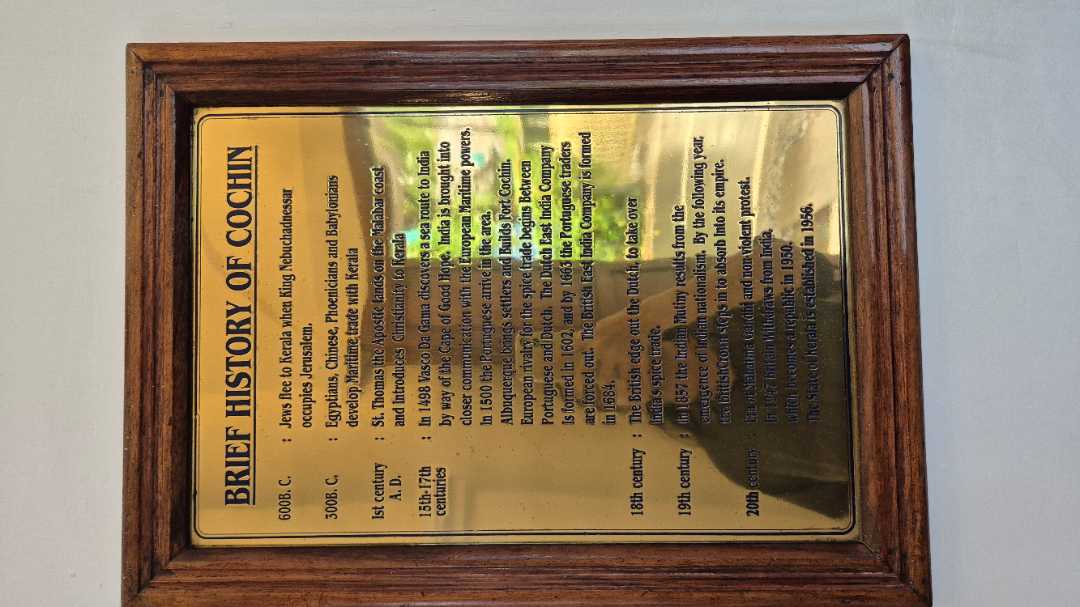 BRIEF HISTORY OF COCHIN
600B. C. : Jews flee to Kerala when King Nebuchadnessar
occupies Jerusalem.
300B. C, : Egyptians, Chinese, Phoenicians and Babylonians
develop Maritime trade with Kerala
1st century : St. Thomas the Apostle lands on the Malabar coast
A. D. and Introduces Christianity to Kerala
15th-17th : In 1498 Vasco Da Gama discovers a sea route to India
centuries by way of the Cape of Good Hope, India is brought into
closer communication with the European Maritime powers.
In 1500 the Portuguese arrive in the area.
Albuquerque brings settlers and Builds Fort Cochin.
European rivalry for the spice trade begins Between
Portuguese and Dutch. The Dutch East India Company
Is formed in 1602, and by 1663 the Portuguese traders
are forced out. The British East India Company is formed
in 1684.
18th century : The British edge out the Dutch, to take over
India's spice trade.
19th century : In 1857 the Indian Mutiny results from the
emergence of Indian nationalism. By the following year,
the British Crown steps in to absorb into its empire.
20th century : Era of Mahatma Gandhi and non violent protest.
In 1947 Britain withdraws from India,
which becomes a republic in 1950.
The State of Kerala is established in 1956.